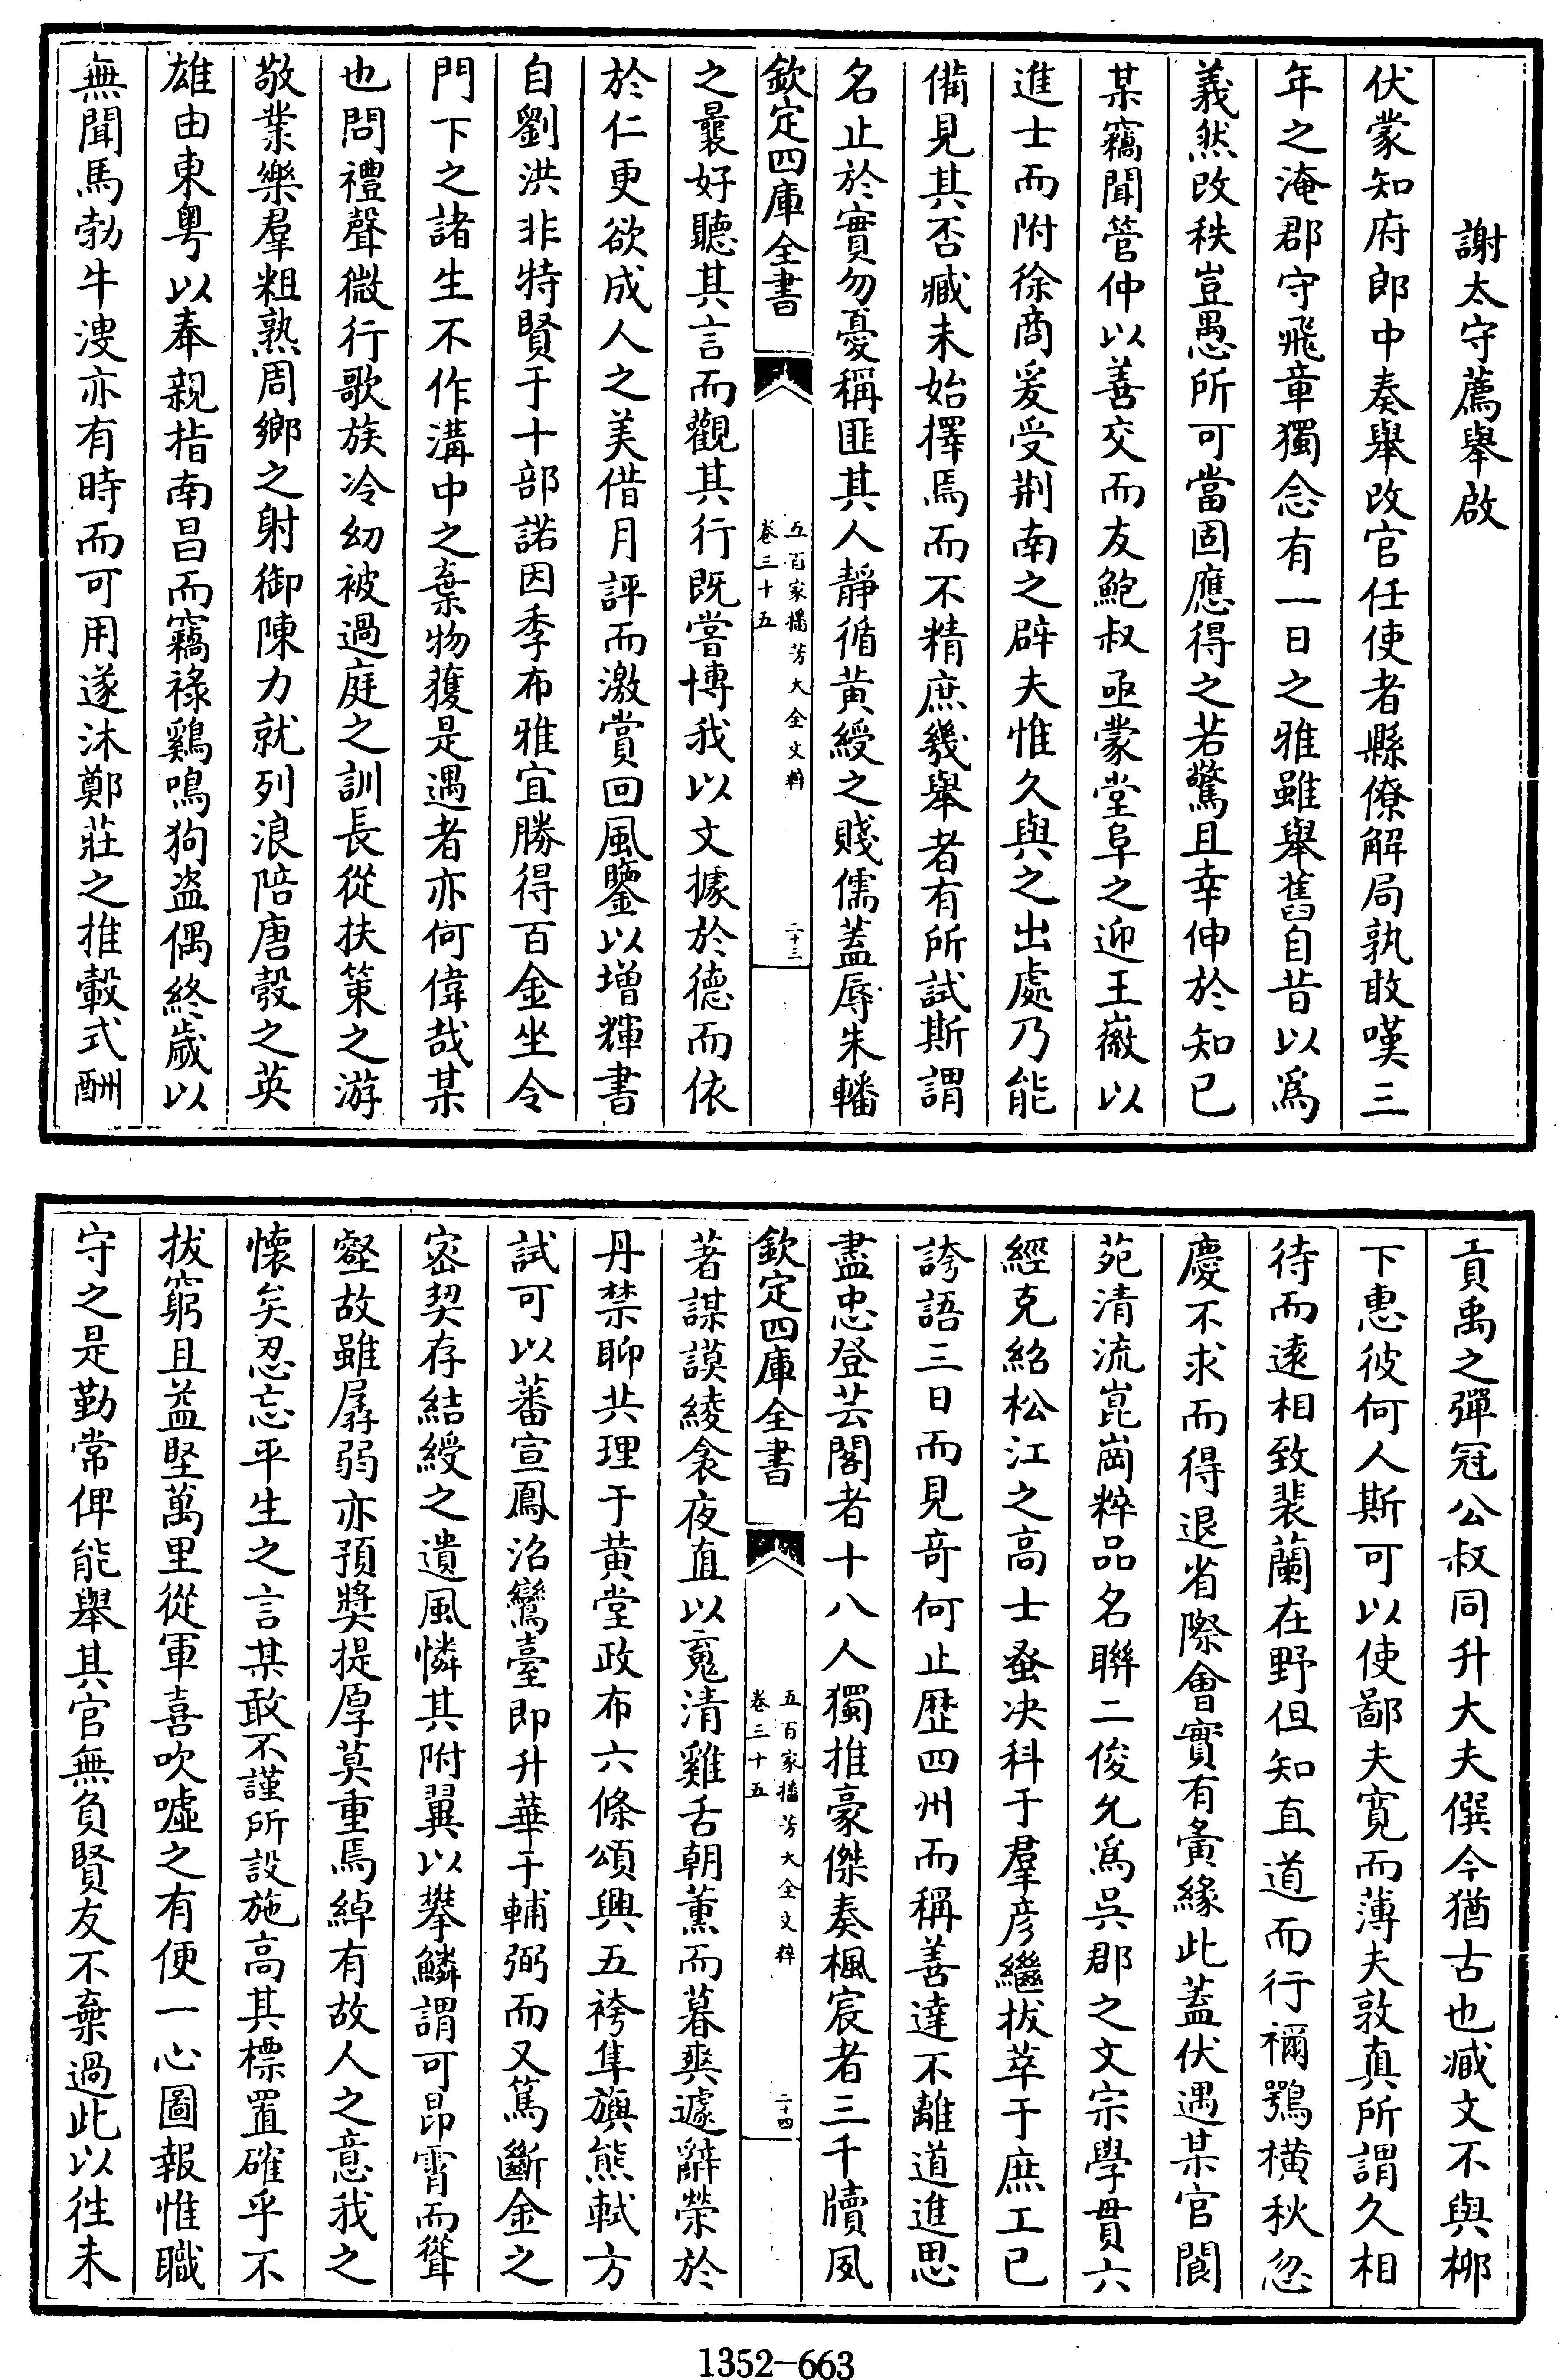 謝太守薦舉啟
伏蒙知府郎中奏舉改官任使者縣僚解局孰敢嘆三
年之淹郡守飛章獨念有一日之雅雖舉舊自昔以為
義然改秩豈愚所可當固應得之若驚且幸伸於知已
某竊聞管仲以善交而友鮑叔亟蒙堂阜之迎王嶶以
進士而附徐商爰受荆南之辟夫惟久與之出處乃能
備見其否臧未始擇焉而不精庶幾舉者有所試斯謂
名止於實勿憂稱匪其人靜循黄綬之賤儒蓋辱朱轓
欽定四庫全書
五百家播芳大全文粹
卷三十五
二十三
之曩好聽其言而觀其行既嘗博我以文據於德而依
於仁更欲成人之美借月評而激賞回風鑒以增輝書
自劉洪非特賢于十部諾因季布雅宜勝得百金坐令
門下之諸生不作溝中之棄物獲是遇者亦何偉哉某
也問禮聲微行歌族冷幼被過庭之訓長從扶策之游
敬業樂羣粗熟周鄉之射御陳力就列浪陪唐彀之英
雄由東粤以奉親指南昌而竊禄鷄鳴狗盗偶終歲以
無聞馬勃牛溲亦有時而可用遂沐鄭莊之推轂式酬
貢禹之彈冠公叔同升大夫僎今猶古也臧文不與柳
下惠彼何人斯可以使鄙夫寛而薄夫敦真所謂久相
待而遠相致裴蘭在野但知直道而行禰鶚横秋忽
慶不求而得退省際會實有夤緣此蓋伏遇某官閬
苑清流崑崗粹品名聯二俊允為吳郡之文宗學貫六
經克紹松江之高士蚤决科于羣彦繼拔萃于庶工已
誇語三日而見奇何止歴四州而稱善達不離道進思
盡忠登芸閣者十八人獨推豪傑奏楓宸者三千牘夙
欽定四庫全書
五百家播芳大全文粹
卷三十五
二十四
著謀謨綾衾夜直以寬清雞舌朝薫而暮爽遽辭榮於
丹禁聊共理于黄堂政布六條頌興五袴隼旟熊軾方
試可以蕃宣鳳沼鸞臺即升華于輔弼而又篤斷金之
宻契存結綬之遺風憐其附翼以攀鱗謂可昂霄而聳
壑故雖孱弱亦預奬提厚莫重焉綽有故人之意我之
懐矣忍忘平生之言某敢不謹所設施高其標置確乎不
拔窮且益堅萬里從軍喜吹噓之有便一心圖報惟職
守之是勤常俾能舉其官無負賢友不棄過此以往未
1352-663